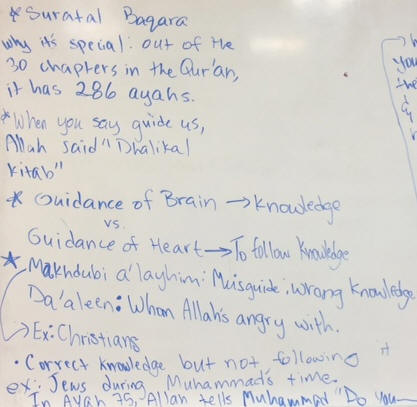 * Suratal Baqara
why it's special: out of the
30 chapters in the Qur'an,
it has 286 ayahs.
* When you say guide us,
Allah said "Dhalikal
kitab"
* Guidance of Brain → knowledge
vs.
Guidance of Heart → To follow knowledge
* Makhdubi a'layhim: Muisguide: wrong knowledge
Da'aleen: Whom Allah's angry with.
→ Ex: Christians
• Correct knowledge but not following it
ex: Jews during Muhammad's time.
In Ayah 75, Allah tells Muhammad "Do you
you
the
&